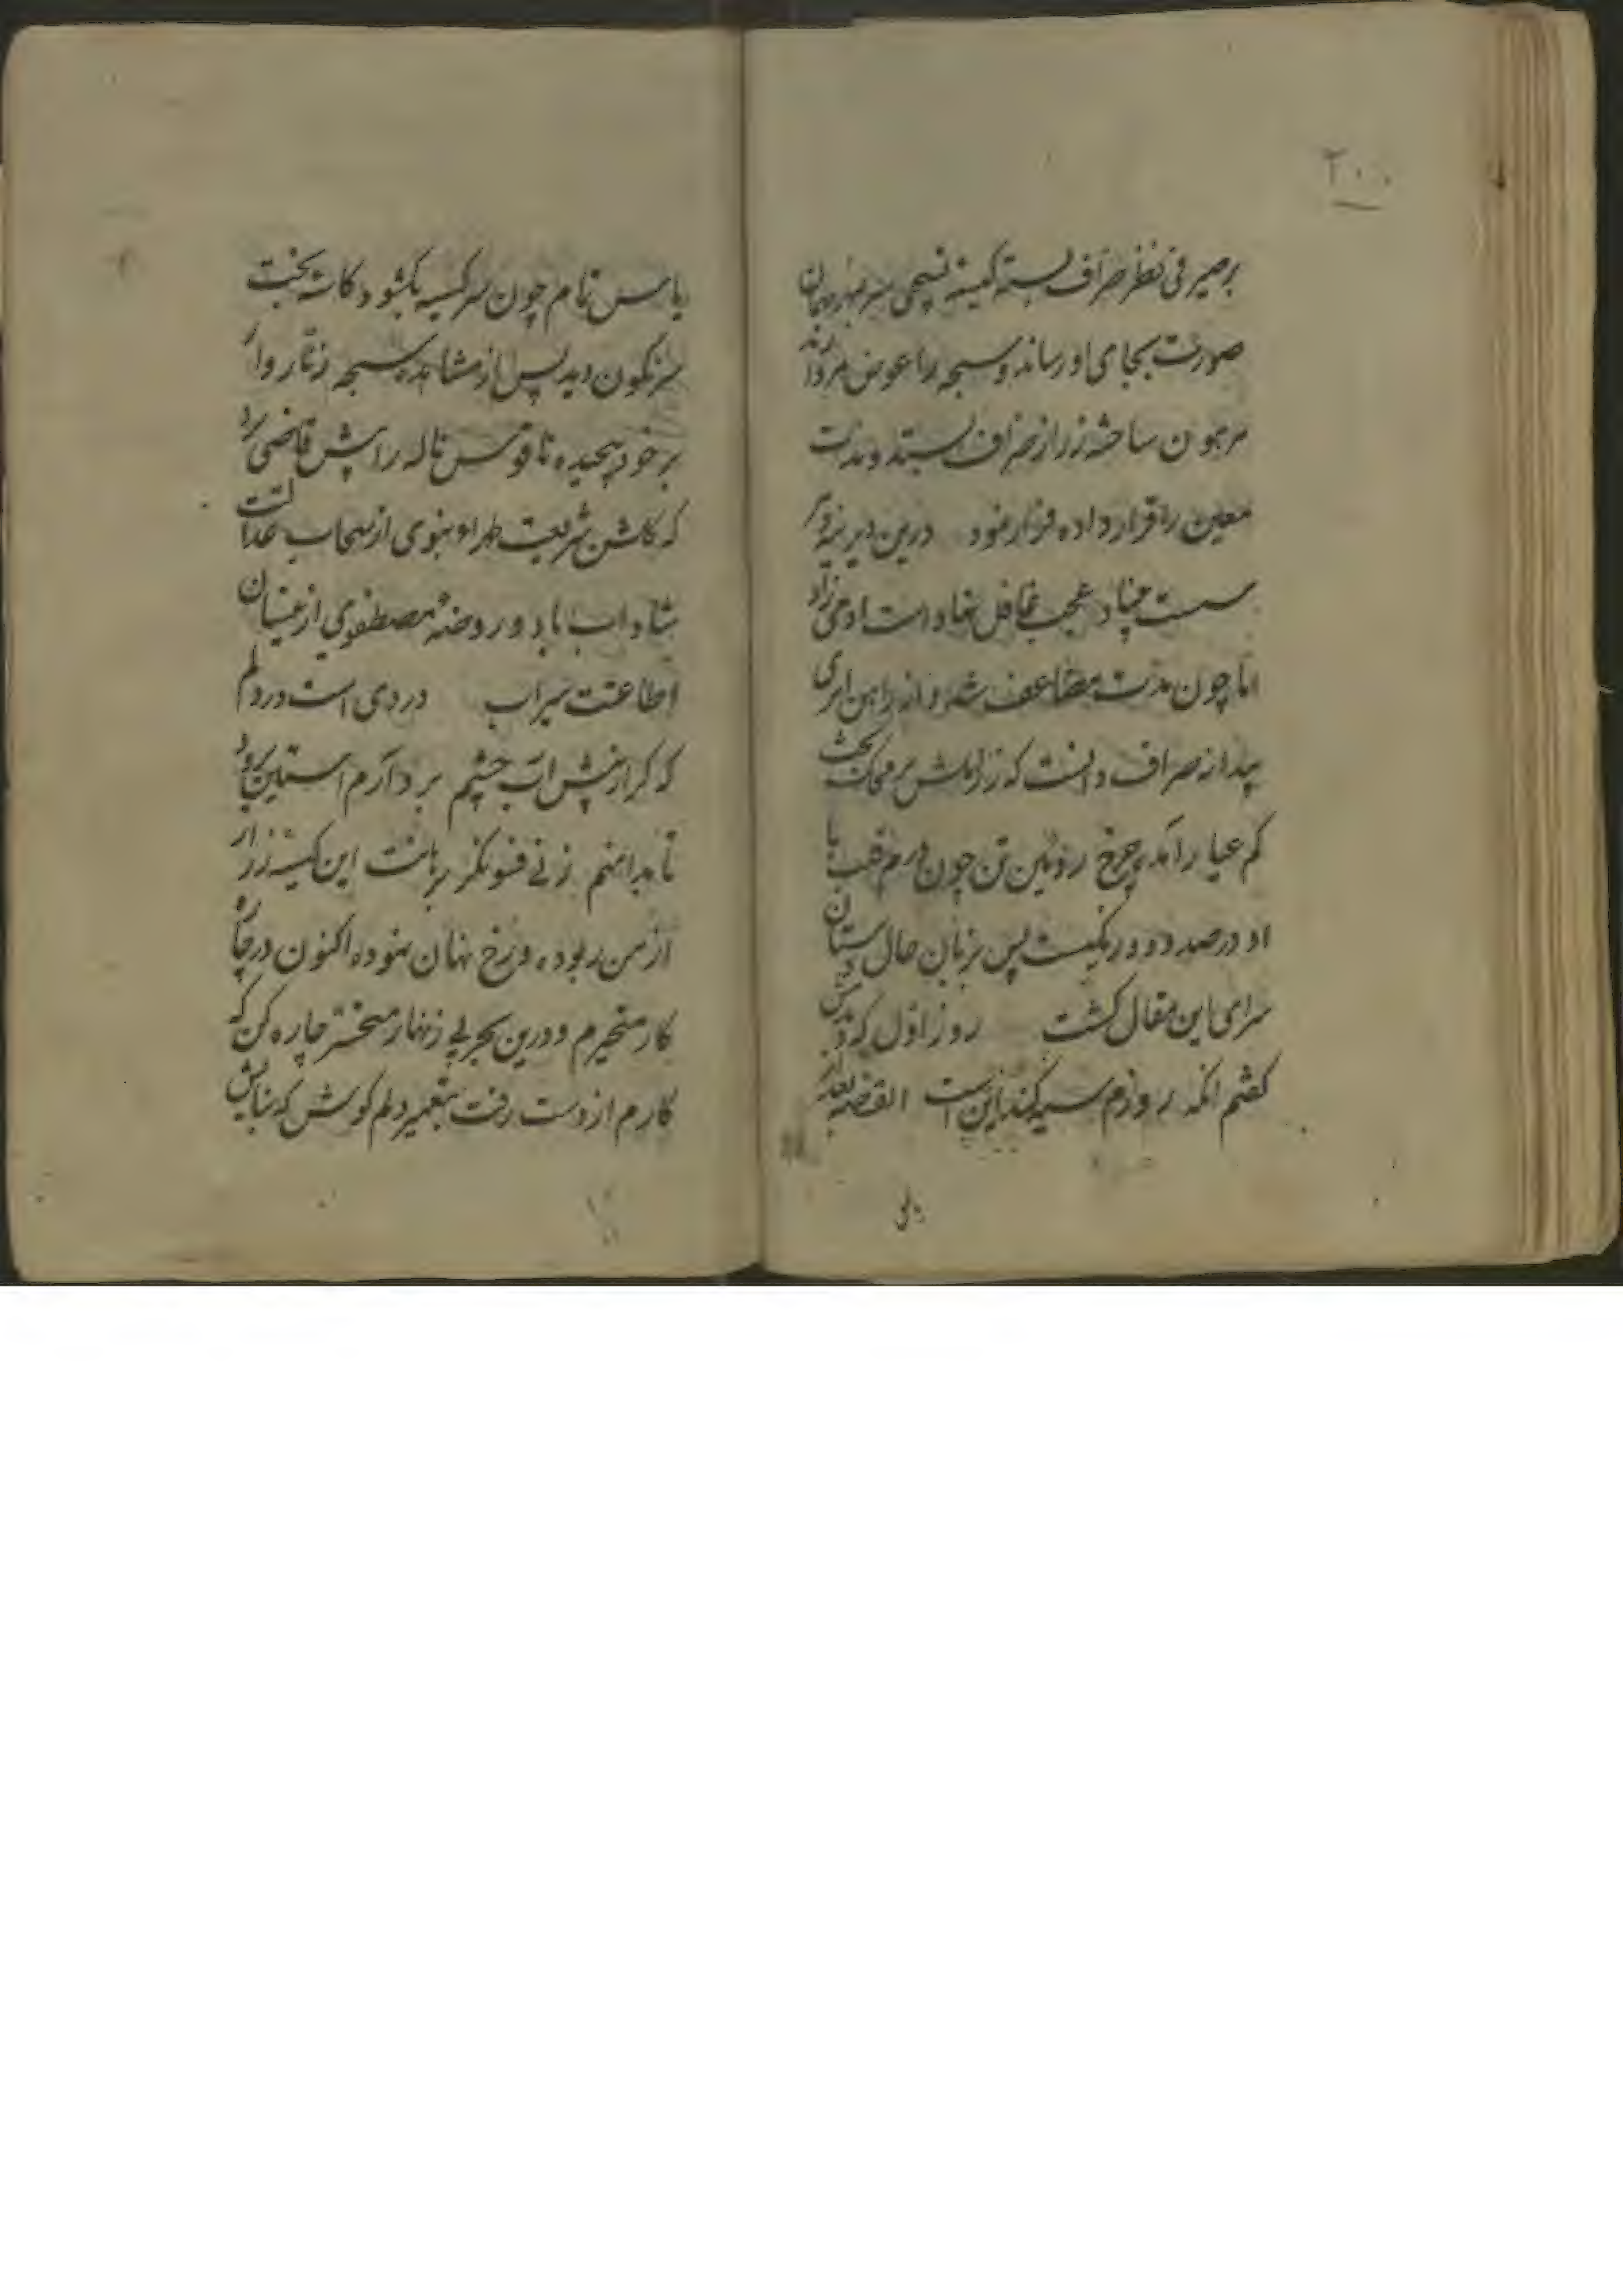 ۲۰۰
بر صیرفی نظر صراف بسته کمینه سر بمهر بهمان
صورت بجای او رساند و سبحه را عوض مروارید
مرهون ساخته زر از صراف بستد و مدت
معین را قرار داده فرار نمود درین دیر
سست بنیاد عجب غافل نهاد است آدمی زاد
اما چون مدت مضاعف شد و از راهن اثری
پیدا نه صراف دانست که زر املش بر محک بخت
کم عیار برآمد و چرخ روئین تن چون درم قلب با
او در صدد دو رنگیست پس بزبان حال دستان
سرای این مقال گشت روز اول که
گفتم آنکه روزم سیه کند این است القصه بعد از
با یاس تمام چون سر کیسه بکشود کاسه بخت
سرنگون دید پس از مشاهده سبحه زنار وار
بر خود پیچیده ناقوس ناله را پیش قاضی برد
که گلشن شریعت غراء نبوی از سحاب عدالتت
شاداب باد و روضه مصطفوی از نیسان
اطاعتت سیراب دردی است در دلم
که گر از پیش آب چشم بردارم آستین برود
تا بدامنم زنی فسونگر برهانت این کیسه زر از
من ربوده و رخ نهان نموده اکنون در چاره
کار متحیرم و درین بحر بی زنهار مسخر چاره کن که
کارم از دست رفت بتعمیر دلم کوش که بنایش